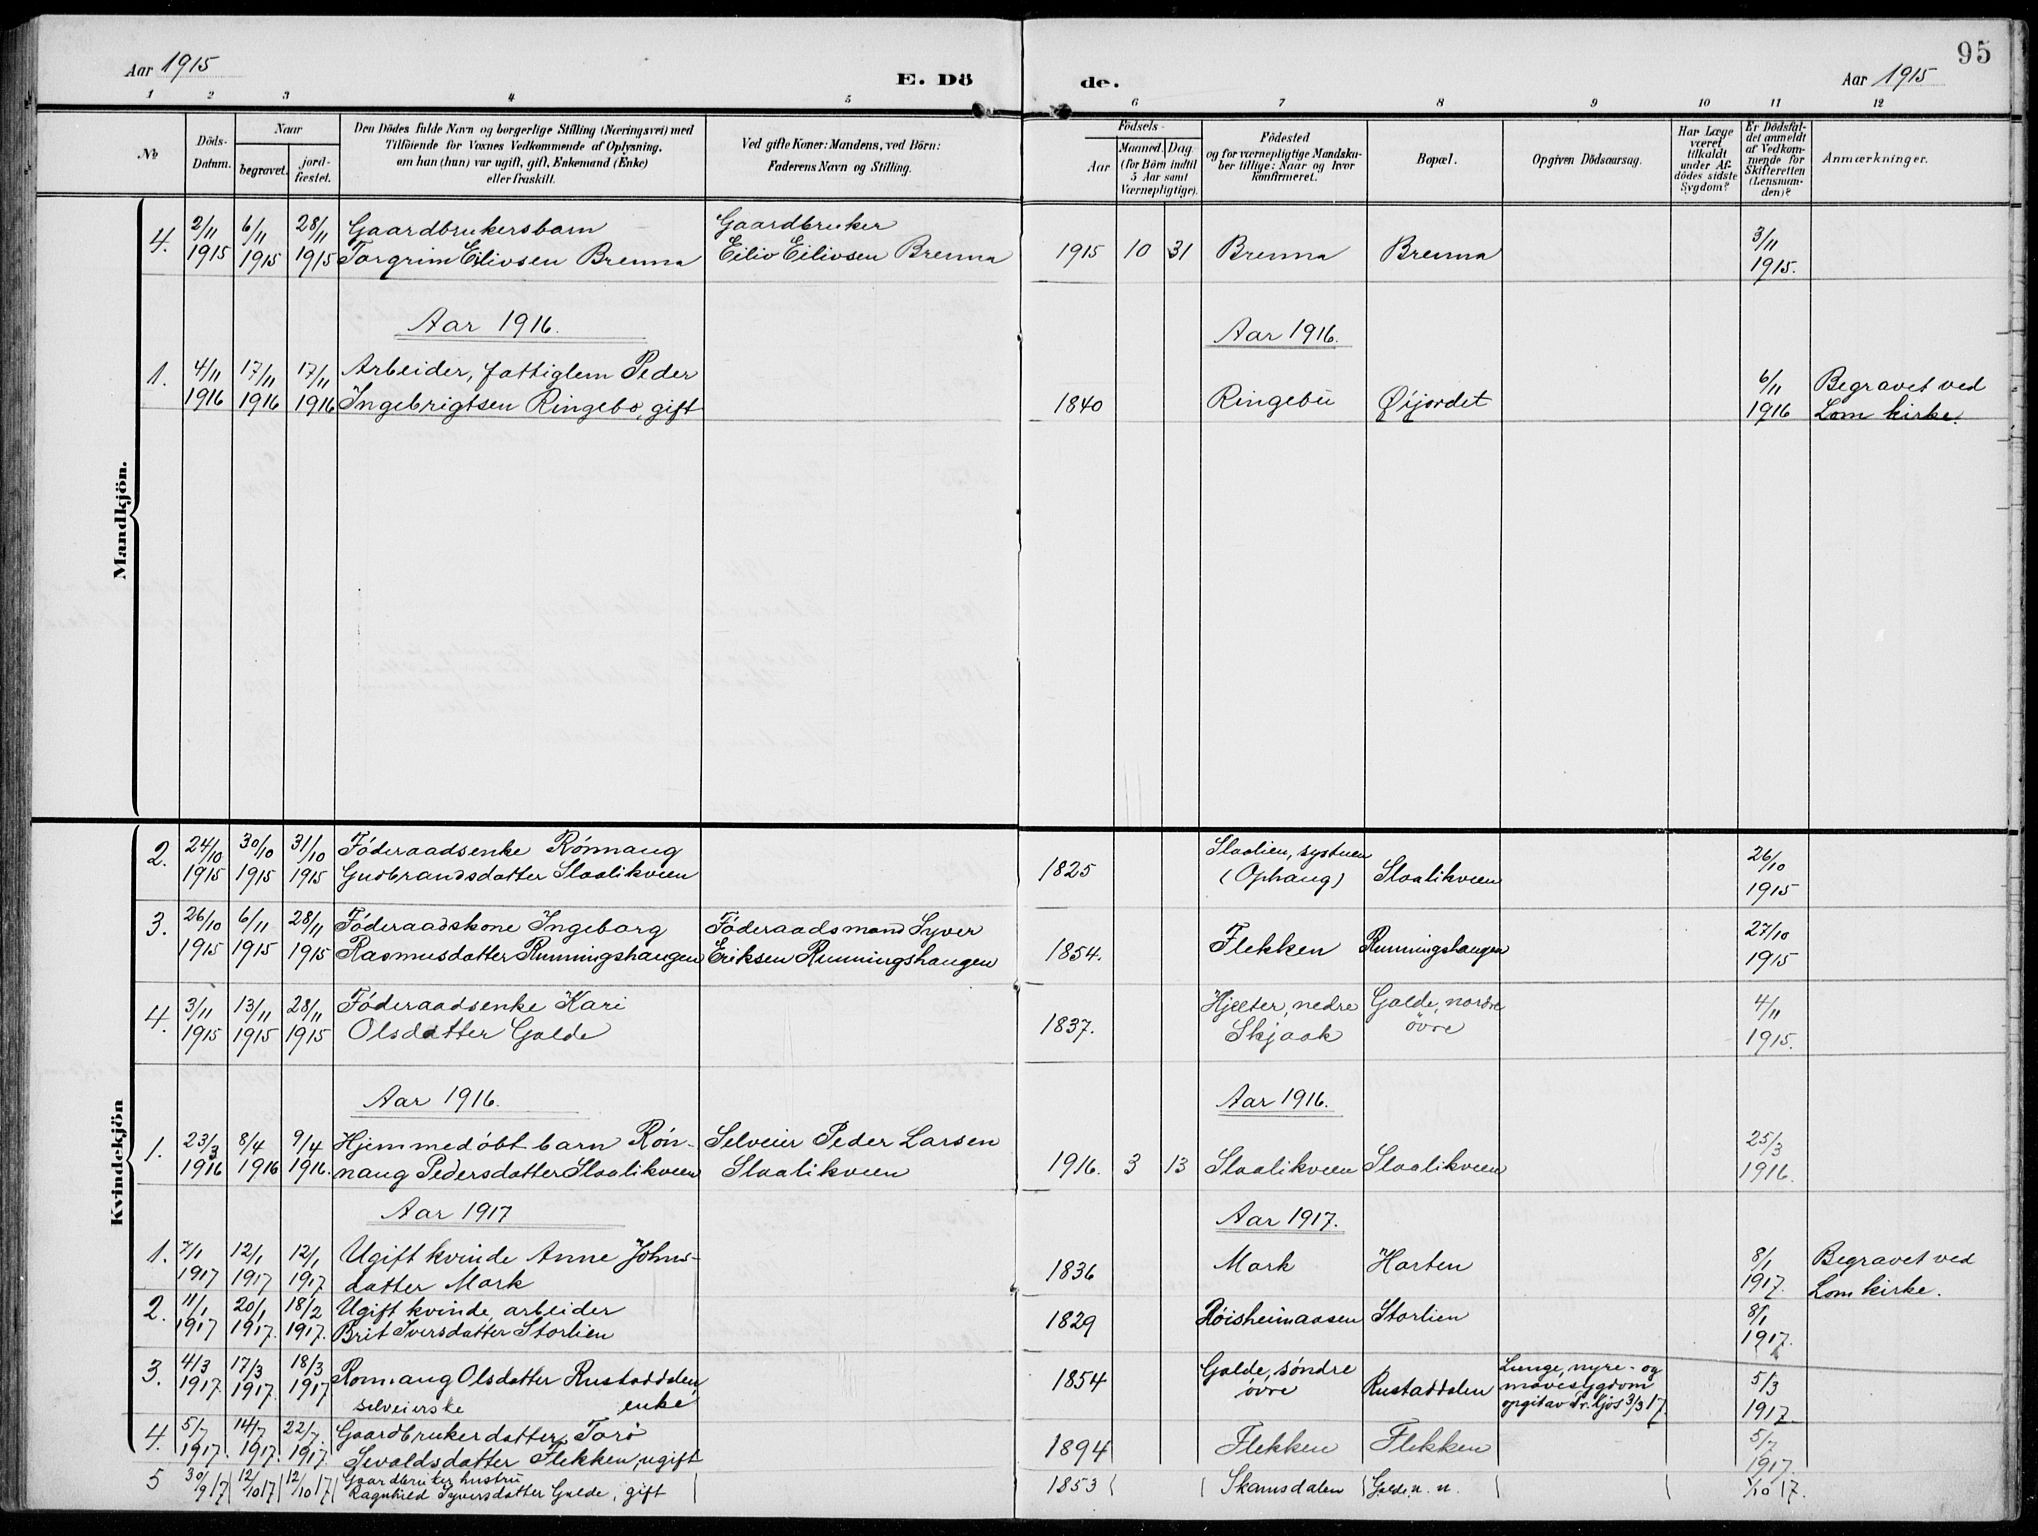 95
Aar 1915
E. Dö de.
Aar 1915
1 2 3 4 5 6 7 8 9 10 11 12
No
Döds-
Datum.
Naar
begravet.
jord-
fæstet.
Den Dödes fulde Navn og borgerlige Stilling (Næringsvei) med
Tilföiende for Voxnes Vedkommende af Oplysning,
om han (hun) var ugift, gift, Enkemand (Enke)
eller fraskilt.
Ved gifte Koner: Mandens, ved Börn:
Faderens Navn og Stilling.
Födsels-
Aar
Maaned. Dag.
(for Börn indtil
5 Aar samt
Værnepligtige).
Födested
og for værnepligtige Mandska-
ber tillige: Naar og hvor
konfirmeret.
Bopæl.
Opgiven Dödsaarsag.
Har Læge
været
tilkaldt
under Af-
dödes sidste
Sygdom?
Er Dödsfal-
det anmeldt
af Vedkom-
mende for
Skifteretten
(Lensman-
den)?
Anmærkninger.
Mandkjön.
4. 2/11 6/11 28/11 Gaardbrukersbarn Gaardbruker 3/11
1915 1915 1915 Torgrim Eilivsen Brenna Eiliv Eilivsen Brenna 1915 10 31 Brenna Brenna 1915.
Aar 1916. Aar 1916.
1. 4/11 17/11 17/11 Arbeider, fattiglem Peder 6/11 Begravet ved
1916 1916 1916 Ingebrigtsen Ringebo, gift 1840 Ringebu Øijordet 1916 Lom kirke.
Kvindekjön
2. 24/10 30/10 31/10 Föderaadsenke Rönnaug Slaalien, systuen 26/10
1915 1915 1915 Gudbrandsdatter Slaalikveen 1825 (Ophaug) Slaalikveen 1915
3. 26/10 6/11 28/11 Föderaadskone Ingeborg Föderaadsmand Syver 27/10
1915 1915 1915 Rasmusdatter Runningshaugen Eriksen Runningshaugen 1854. Flekken Runningshaugen 1915
4. 3/11 13/11 28/11 Föderaadsenke Kari Hjelter, nedre Galde, nordre 4/11
1915 1915 1915 Olsdatter Galde 1837. Skjaak övre 1915.
Aar 1916. Aar 1916.
1. 23/3 8/4 9/4 Hjemmedöbt barn Rön- Selveier Peder Larsen 25/3
1916 1916 1916. naug Pedersdatter Slaalikveen Slaalikveen 1916. 3 13 Slaalikveen Slaalikveen 1916.
Aar 1917 Aar 1917.
1. 7/1 12/1 12/1 Ugift kvinde Anne Johns- Mork Horten 8/1 Begravet ved
1917 1917 1917 datter Mork 1836 1917. Lom kirke.
2. 11/1 20/1 18/2 Ugift kvinde, arbeider 8/1
1917 1917. 1917. Brit Iversdatter Storlien 1829 Röisheimaasen Storlien 1917.
3. 4/3 17/3 18/3 Ronnaug Olsdatter Rustaddalen, 1854 Galde, söndre Rustaddalen Lunge, nyre- og 5/3
1917. 1917. 1917 selveierske enke övre mavesygdom 1917
opgit av Dr. Gjös 3/3 17.
4. 5/7 14/7 22/7 Gaardbrukerdatter Torö 5/7
1917. 1917. 1917. Sevaldsdatter Flekken, ugift 1894 Flekken Flekken 1917.
5 30/9 17 12/10 17 12/10 17 Gaardbruker hustru
Ragnhild Syversdatter Galde, gift 1853 Skamsdalen Galde n. n. 1/10 17.